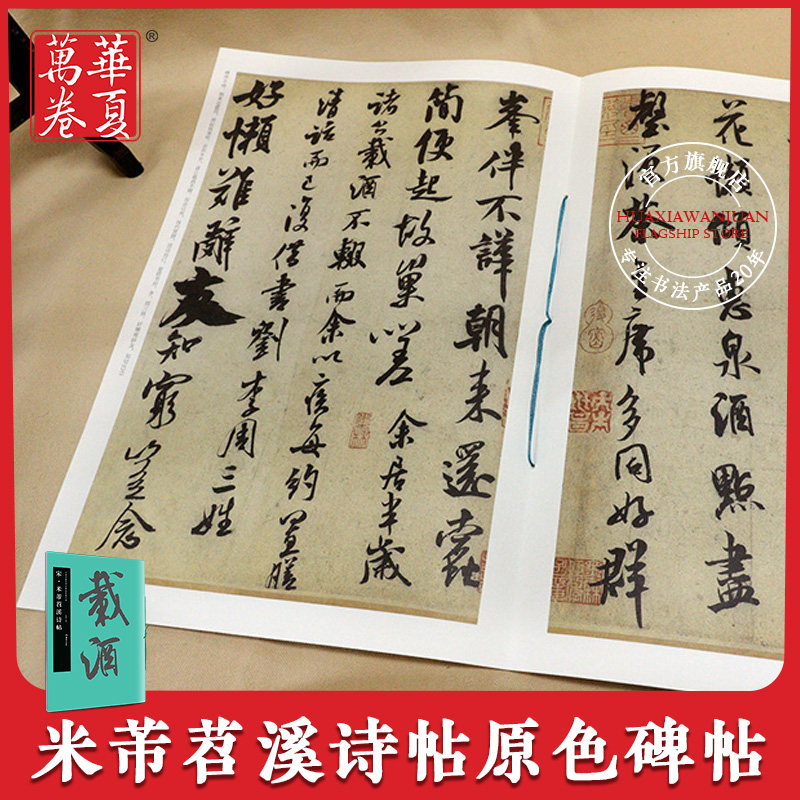 華夏
萬卷
®
官方旗舰店
HUAXIAWANJUAN
FLAGSHIP STORE
专注书法产品20年
花懶傾惠泉酒點盡
壑源茶主席多同好群
峯伴不譁朝来還蠹
簡便起故巢嗟 余居半歲
諸公載酒不輟而余以疾每約置膳
清話而已復借書劉李周三姓
好懶難辭友知窮豈念
宋·米芾苕溪诗帖
載酒
米芾苕溪诗帖原色碑帖